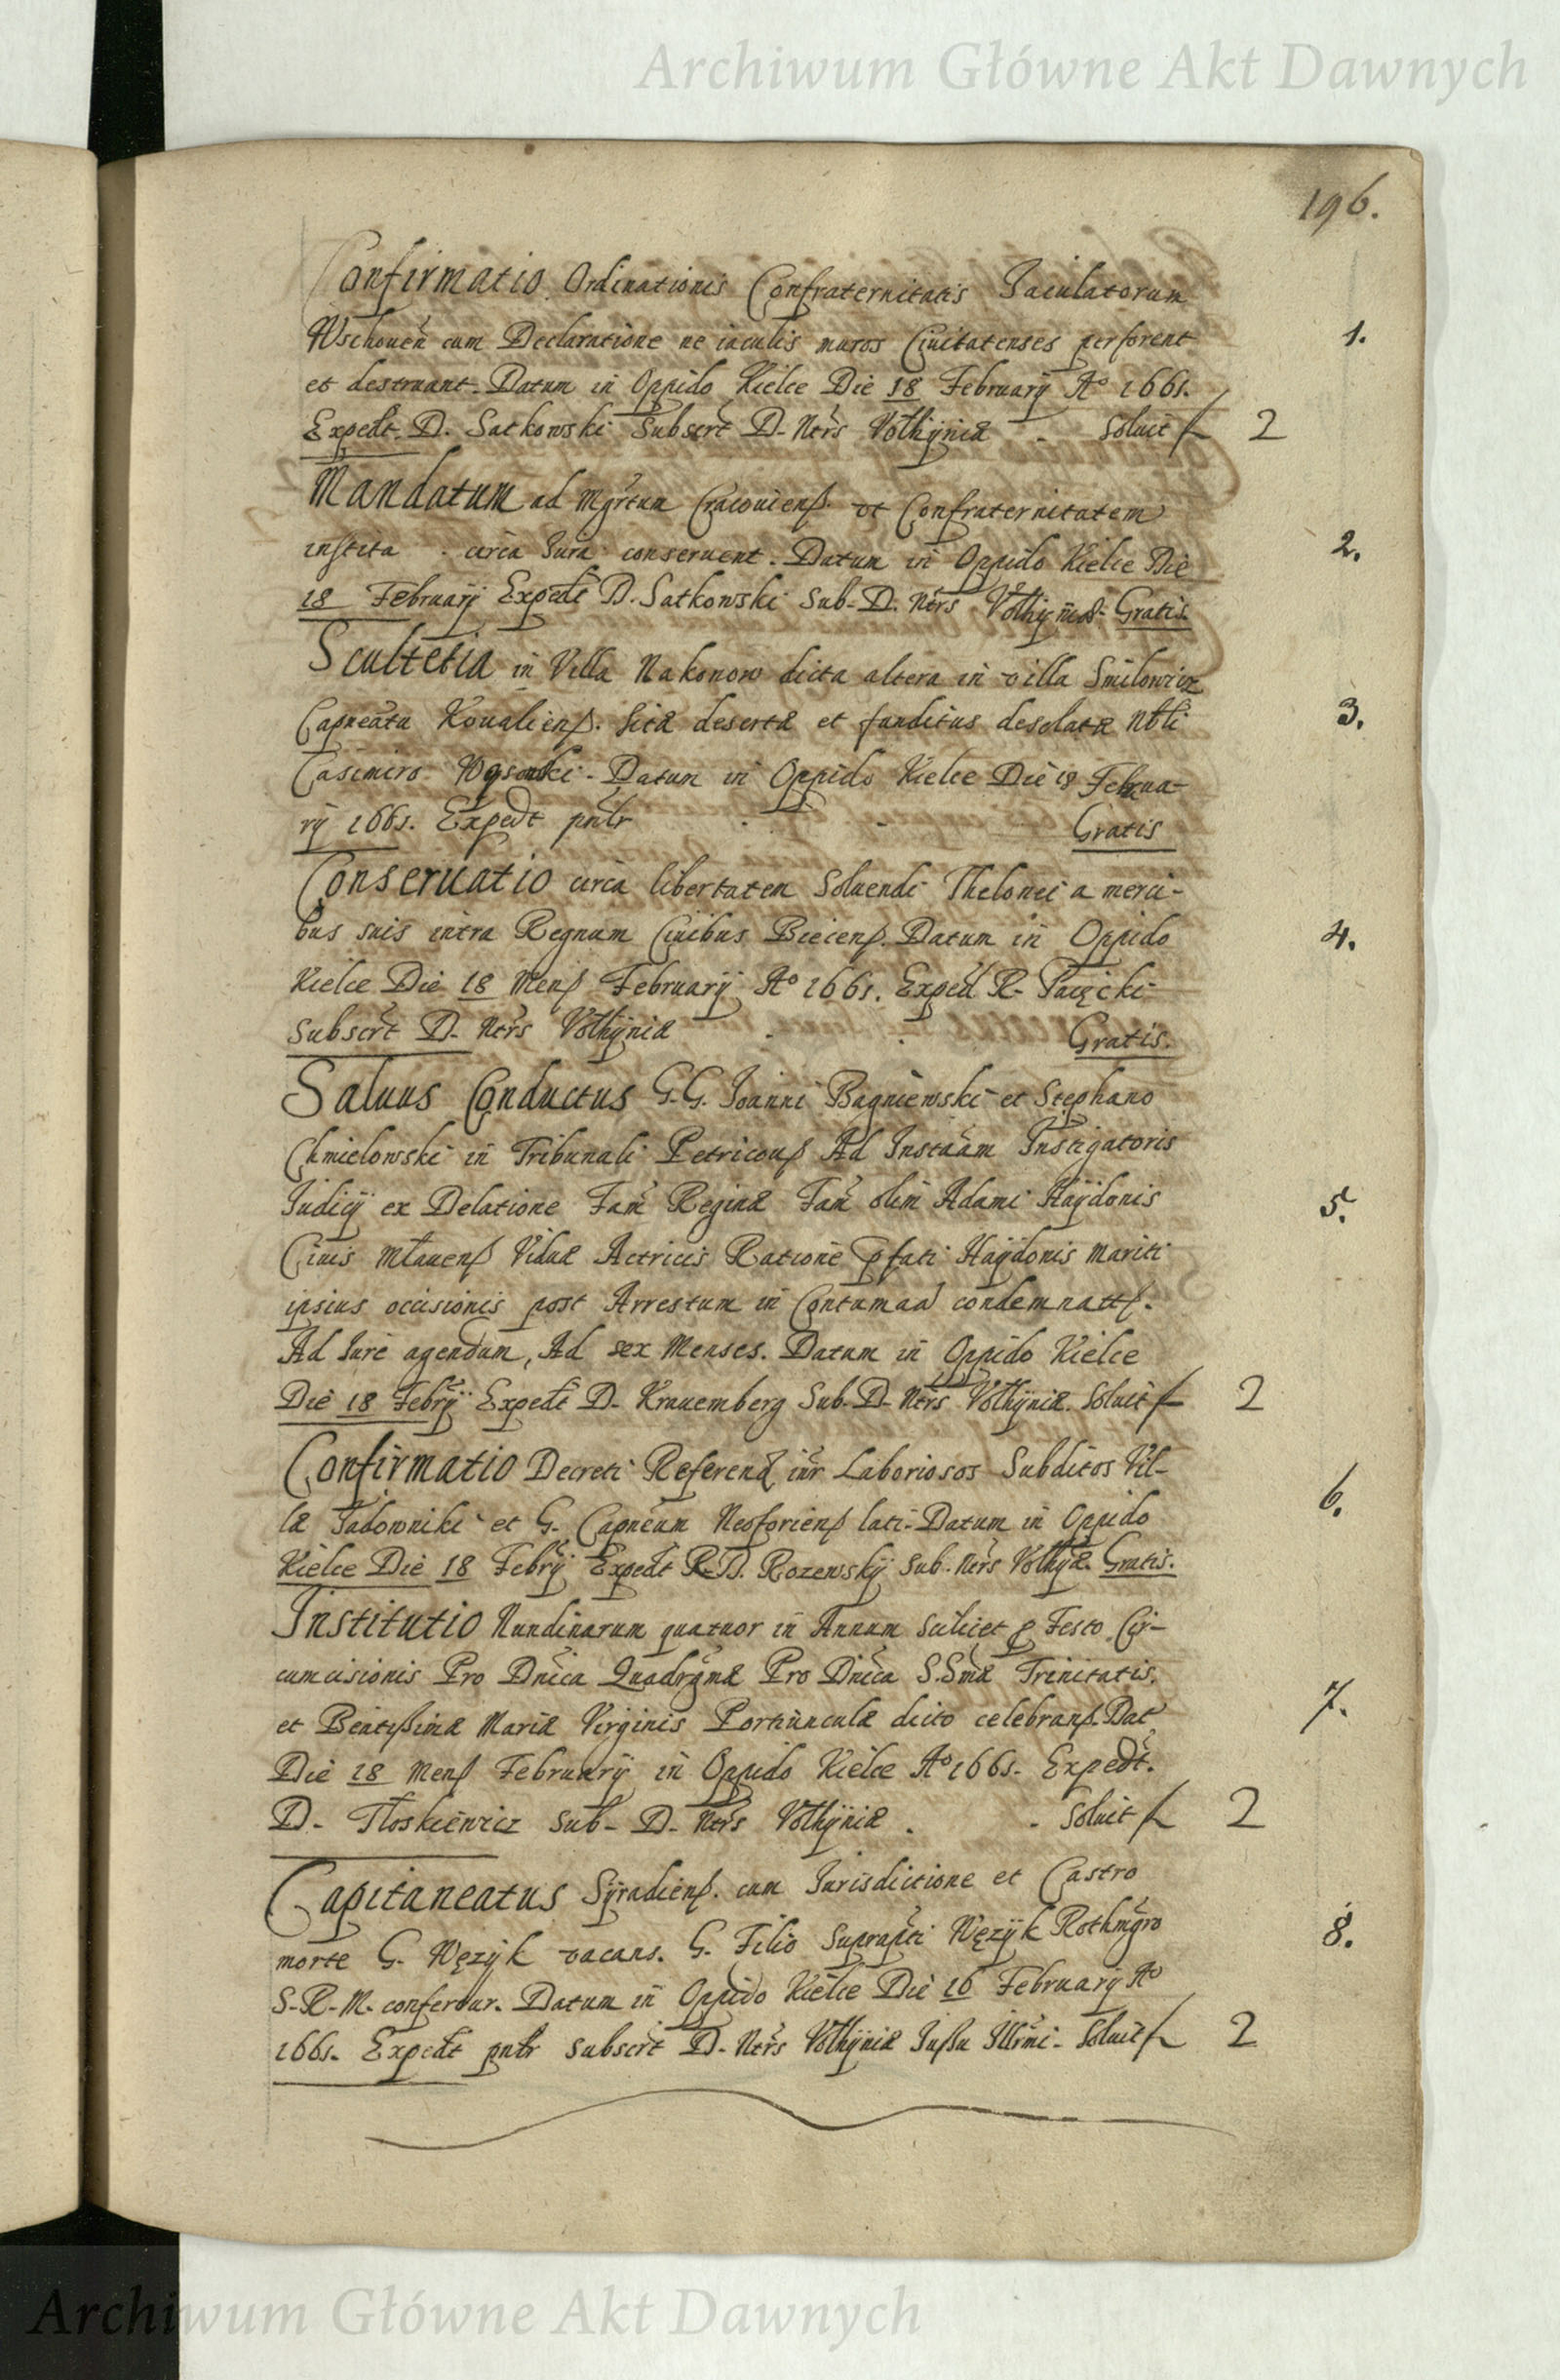 Archiwum Główne Akt Dawnych
196.
Confirmatio Ordinationis Confraternitatis Iaculatorum
Wschoueñ cum Declaratione ne iaculis muros Ciuitatenses perforent 1.
et destruant. Datum in Oppido Kielce Die 18 February Aº 1661.
Expedt. D. Satkowski Subscrt D. Ntrs Volhyniæ - Soluit f 2
Mandatum ad Mgrtum Cracouienß. vt Confraternitatem
instita circa Iura conseruent. Datum in Oppido Kielce Die 2.
18 February Expedt D. Satkowski Sub. D. Ntrs Volhyniæ. Gratis.
Scultetia in Villa Nakonow dicta altera in villa Smilowicz
Capneatu Koualienß. sitæ desertæ et funditus desolatæ Nbli 3.
Casimiro Datum in Oppido Kielce Die 18 Februa-
rÿ 1661. Expedt pntr Gratis
Conseruatio circa libertatem Soluendi Thelonei a merci-
bus suis intra Regnum Ciuibus Biecenß. Datum in Oppido 4.
Kielce Die 18 Menß February Aº 1661. Exped R. Paięcki
Subscrt D. Ntrs Volhyniæ Gratis.
Saluus Conductus G.G. Ioanni Bagniewski et Stephano
Chmielowski in Tribunali Petricouß Ad Instãam Instigatoris
Iudicij ex Delatione Fam Reginæ Fam olim Adami Haÿdonis 5.
Ciuis Mlauenß Viduæ Actricis Ratione pfati Haÿdonis mariti
ipsius occisionis post Arrestum in Contumaa condemnatß.
Ad Iure agendum, Ad sex Menses. Datum in Oppido Kielce
Die 18 Febrÿ Expedt D. Krauemberg Sub. D. Ntrs Volhyniæ. Soluit f 2
Confirmatio Decreti Referend intr Laboriosos Subditos Vil-
læ Iadowniki et G. Capneum Neoforienß lati. Datum in Oppido 6.
Kielce Die 18 Febrÿ Expedt R.D. Rozewskÿ Sub. Ntrs Volhyæ. Gratis.
Institutio Nundinarum quatuor in Annum scilicet p Festo Cir-
cumcisionis Pro Dnica Quadrgmæ Pro Dnica S.Smæ Trinitatis,
et Beatißimæ Mariæ Virginis Portiunculæ dicto celebranß. Dat 7.
Die 18 Menß Februarÿ in Oppido Kielce Aº 1661. Expedt.
D. Tłoskiewicz Sub. D. Ntrs Volhyniæ . - Soluit f 2
Capitaneatus Sÿradienß. cum Iurisdictione et Castro
morte G. Węzÿk vacans. G. Filio Suprapti Węzÿk Rothmgro 8.
S.R.M. confertur. Datum in Oppido Kielce Die 16 Februarÿ Aº
1661. Expedt pntr Subscrt D. Ntrs Volhyniæ Iußu Illrmi. Soluit f 2
Archiwum Główne Akt Dawnych